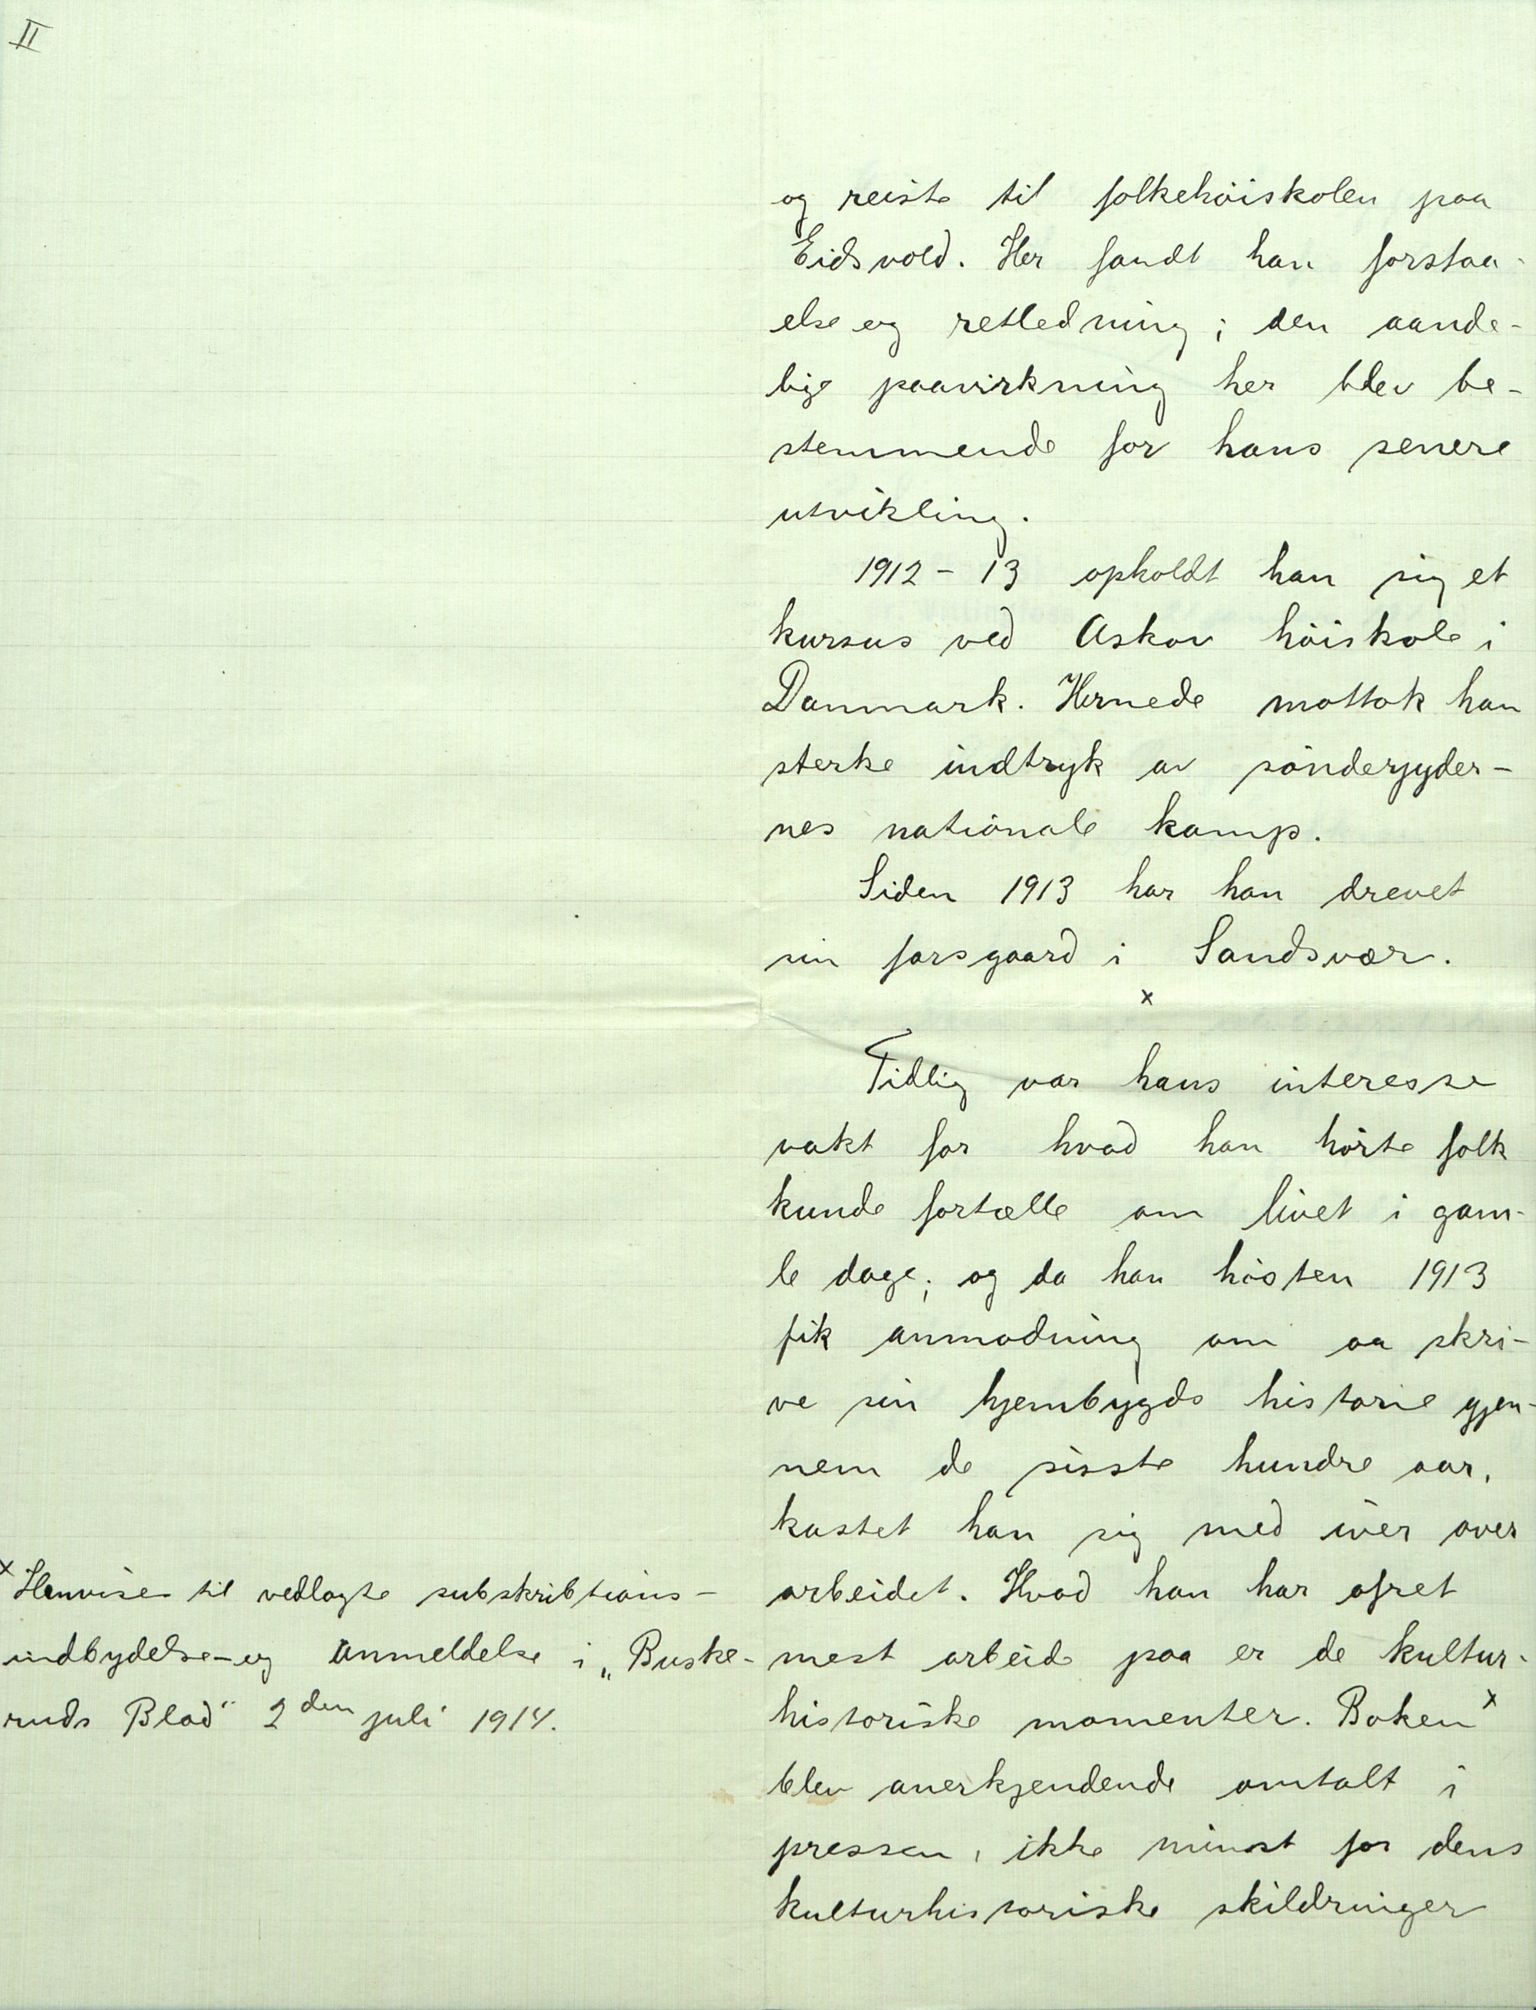 II
og reiste til folkehöiskolen paa
Eidsvold. Her fandt han forstaa-
else og retledning; den aande-
lige paavirkning her blev be-
stemmende for hans senere
utvikling.
1912 - 13 opholdt han sig et
kursus ved Askov höiskole i
Danmark. Hernede mottok han
sterke indtryk av sönderjyder-
nes nationale kamp.
Siden 1913 har han drevet
sin farsgaard i Sandsvær.
x
Tidlig var hans interesse
vakt for hvad han hörte folk
kunde fortælle om livet i gam-
le dage; og da han hösten 1913
fik anmodning om aa skri-
ve sin hjembygds historie gjen-
nem de sisste hundre aar,
kastet han sig med iver over
arbeidet. Hvad han har ofret
mest arbeid paa er de kultur-
historiske momenter. Boken x
blev anerkjendende omtalt i
pressen, ikke minst for dens
kulturhistoriske skildringer
x Henviser til vedlagte subskribtions-
indbydelse - og anmeldelse i „Buske-
ruds Blad" 2den juli 1914.